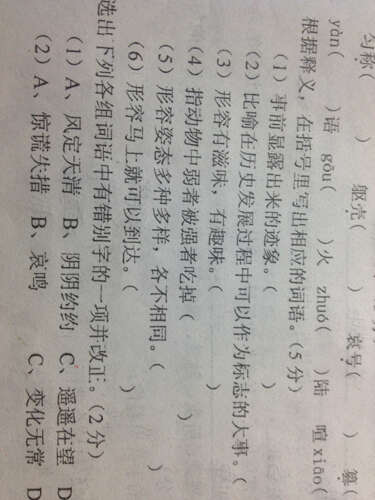 匀称（　　）　躯壳（　　）　哀号（　　）　篡（
yàn（　　）语　gōu（　　）火　zhuó（　　）陆　喧xiāo（
根据释义，在括号里写出相应的词语。（5分）
（1）事前显露出来的迹象。（　　）
（2）比喻在历史发展过程中可以作为标志的大事。（
（3）形容有滋味，有趣味。（　　）
（4）指动物中弱者被强者吃掉（　　）
（5）形容姿态多种多样，各不相同。（　　）
（6）形容马上就可以到达。（　　）
选出下列各组词语中有错别字的一项并改正。（2分）
（1）A、风定天潽　B、阴阴约约　C、遥遥在望　D
（2）A、惊谎失措　B、哀鸣　C、变化无常　D